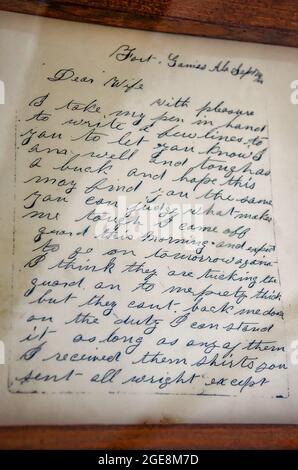 Fort. Gaines Ala Sept
Dear Wife
I take with pleasure
my pen in hand
to write a few lines to
you to let you know I
am well and tough as
a buck and hope this
may find you the same
you can judg what makes
me tough I came off
guard this morning and expect
to go on tomorrow again
I think they are tucking the
guard on to me pretty thick
but they cant. back me down
on the duty I can stand
it as long as any of them
I received them shirts you
sent all wright except
alamy
Image ID: 2GE8M7D
www.alamy.com